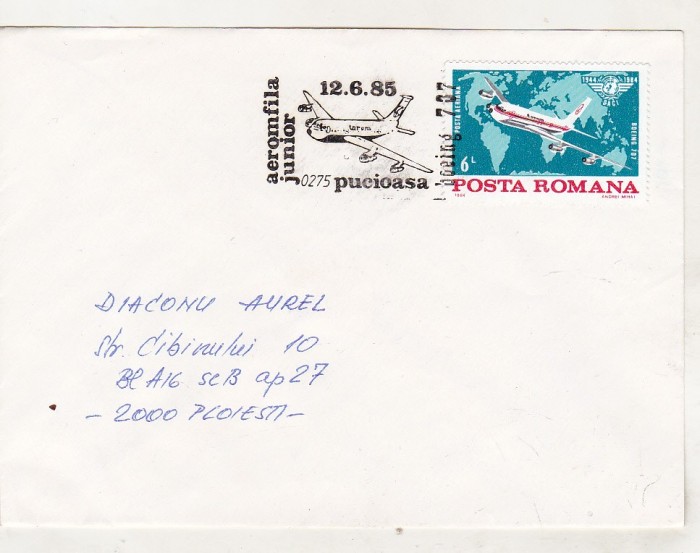 12.6.85
aeromfila
junior
tarom
0275 pucioasa
boeing 707
1944 1984
OACI
POSTA AERIANA
BOEING 707
6L
POSTA ROMANA
1984
ANDREI MIHAI
DIACONU AUREL
Str. Cibinului 10
Bl A16 scB ap27
- 2000 PLOIESTI -